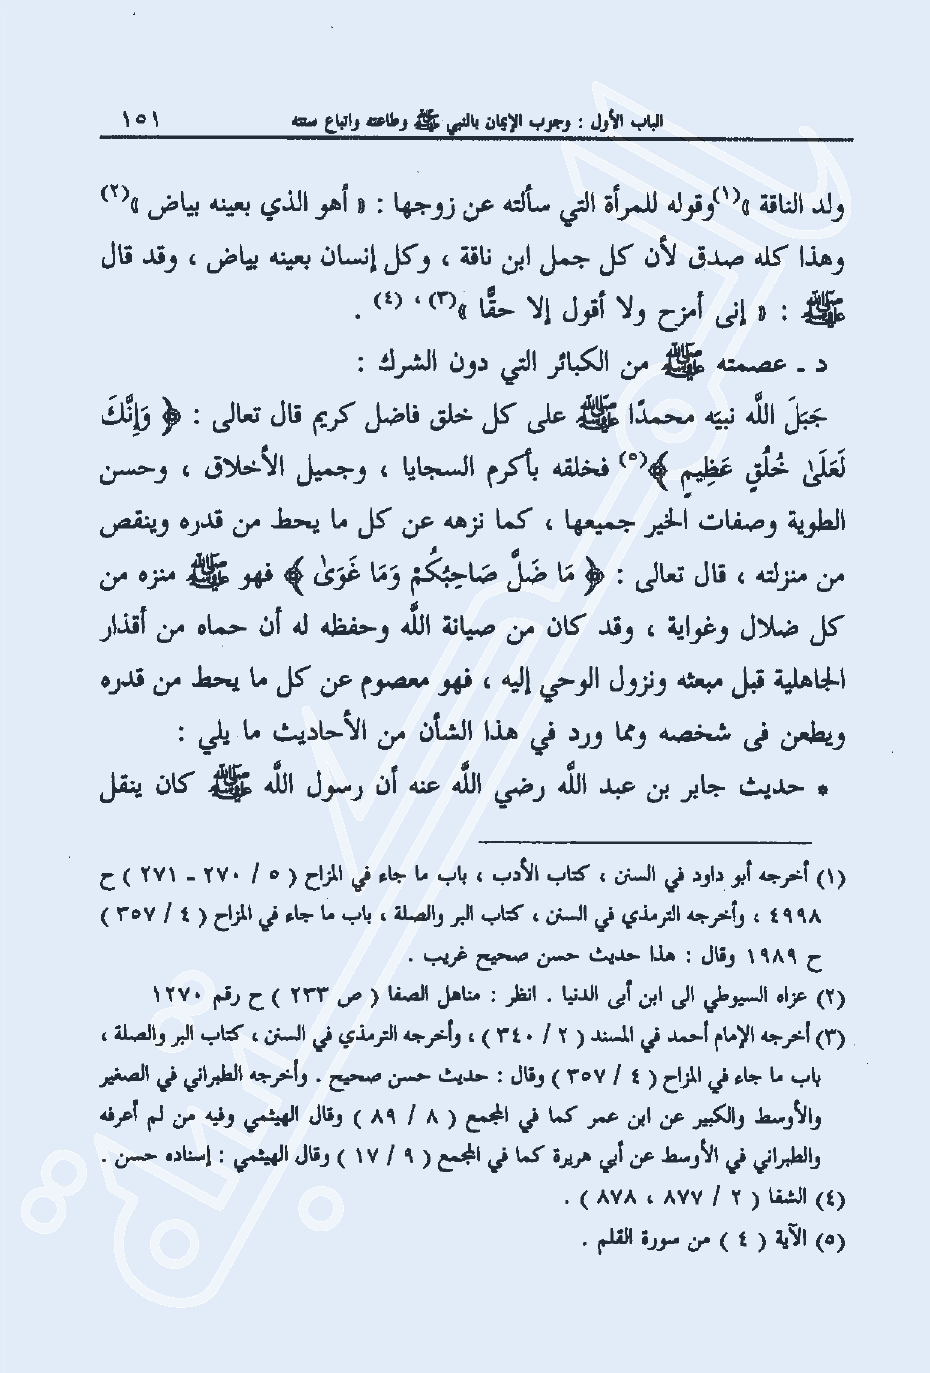 الباب الأول : وجوب الإيمان بالنبي ﷺ وطاعته واتباع سنته ١٥١
ولد الناقة »(١) وقوله للمرأة التي سألته عن زوجها : « أهو الذي بعينه بياض »(٢)
وهذا كله صدق لأن كل جمل ابن ناقة ، وكل إنسان بعينه بياض ، وقد قال
ﷺ : « إنى أمزح ولا أقول إلا حقًّا »(٣) ، (٤) .
د ـ عصمته ﷺ من الكبائر التي دون الشرك :
جَبَلَ اللَّه نبيَه محمدًا ﷺ على كل خلق فاضل كريم قال تعالى : ﴿ وَإِنَّكَ
لَعَلَىٰ خُلُقٍ عَظِيمٍ ﴾(٥) فخلقه بأكرم السجايا ، وجميل الأخلاق ، وحسن
الطوية وصفات الخير جميعها ، كما نزهه عن كل ما يحط من قدره وينقص
من منزلته ، قال تعالى : ﴿ مَا ضَلَّ صَاحِبُكُمْ وَمَا غَوَىٰ ﴾ فهو ﷺ منزه من
كل ضلال وغواية ، وقد كان من صيانة اللَّه وحفظه له أن حماه من أقذار
الجاهلية قبل مبعثه ونزول الوحي إليه ، فهو معصوم عن كل ما يحط من قدره
ويطعن فى شخصه ومما ورد في هذا الشأن من الأحاديث ما يلي :
* حديث جابر بن عبد اللَّه رضي اللَّه عنه أن رسول اللَّه ﷺ كان ينقل
(١) أخرجه أبو داود في السنن ، كتاب الأدب ، باب ما جاء في المزاح ( ٥ / ٢٧٠ ـ ٢٧١ ) ح
٤٩٩٨ ، وأخرجه الترمذي في السنن ، كتاب البر والصلة ، باب ما جاء في المزاح ( ٤ / ٣٥٧ )
ح ١٩٨٩ وقال : هذا حديث حسن صحيح غريب .
(٢) عزاه السيوطي الى ابن أبى الدنيا . انظر : مناهل الصفا ( ص ٢٣٣ ) ح رقم ١٢٧٠
(٣) أخرجه الإمام أحمد في المسند ( ٢ / ٣٤٠ ) ، وأخرجه الترمذي في السنن ، كتاب البر والصلة ،
باب ما جاء في المزاح ( ٤ / ٣٥٧ ) وقال : حديث حسن صحيح . وأخرجه الطبراني في الصغير
والأوسط والكبير عن ابن عمر كما في المجمع ( ٨ / ٨٩ ) وقال الهيثمي وفيه من لم أعرفه
والطبراني في الأوسط عن أبي هريرة كما في المجمع ( ٩ / ١٧ ) وقال الهيثمي : إسناده حسن .
(٤) الشفا ( ٢ / ٨٧٧ ، ٨٧٨ ) .
(٥) الآية ( ٤ ) من سورة القلم .